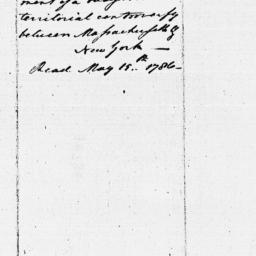 ment of a
territorial controversy
between Massachusetts &
New York —
Read May 15th 1786—